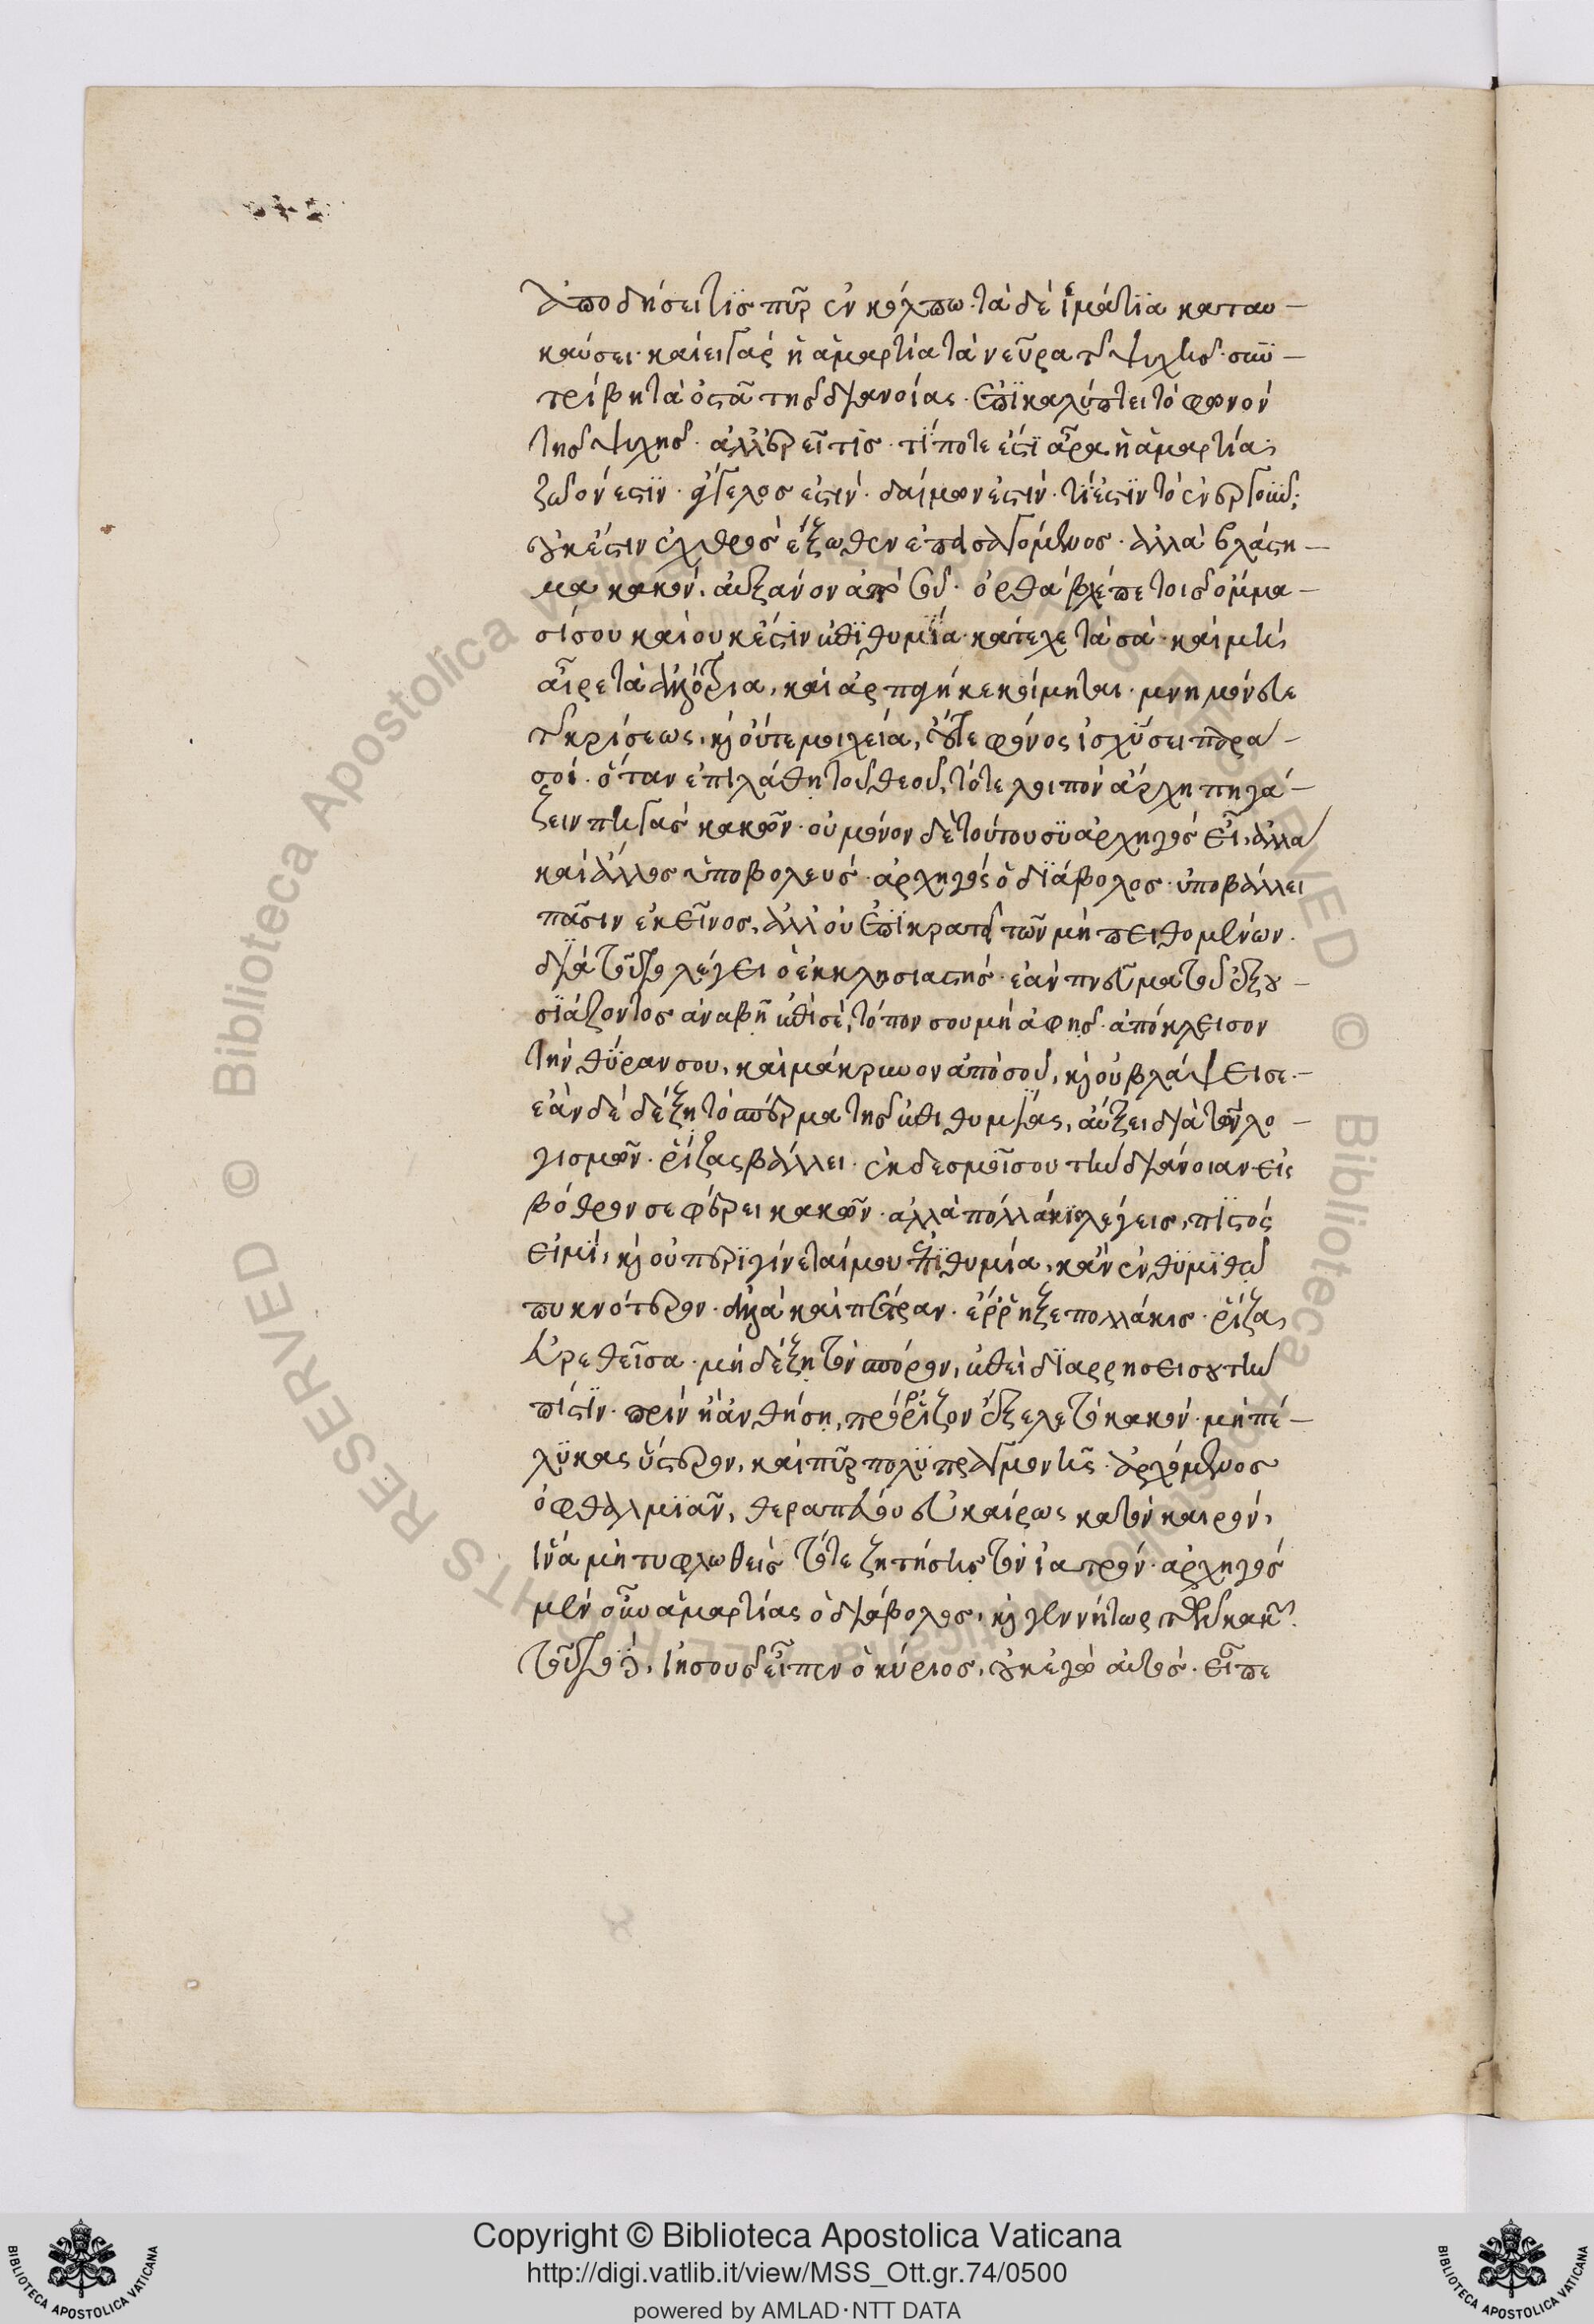 ἀποδήσει τὶς πῦρ ἐν κόλπω· τὰ δὲ ἱμάτια καταυ-
καύσει· καίει γὰρ ἡ ἁμαρτία τὰ νεῦρα τῆς ψυχῆς· συν-
τρίβη τὰ ὀστᾶ τῆς διανοίας· ἐπικαλύπτει τὸ φωνὸν
τῆς ψυχῆς· ἀλλ' ἐρεῖ τίς· τί ποτε ἐστὶ ἆρα ἡ ἁμαρτία;
ζωόν ἐστιν· ἄγγελος ἐστιν· δαίμων ἐστιν· τί ἐστιν τὸ ἐνεργοῦν;
οὐκ ἔστιν ἐχθρὸς ἔξωθεν ἐπαγόμενος· ἀλλὰ βλάστη-
μα κακόν, αὐξανον ἀπό σου· ὀρθὰ βλέπε τοῖς ὄμμα-
σί σου καὶ οὐκ ἔστιν ἐπιθυμία· κάτεχε τὰ σὰ· καὶ μὴ
αἶρε τὰ ἀλλότρια, καὶ ἁρπαγὴ κεκοίμηται· μνημόνευε
τῆς κρίσεως, καὶ οὔτε μοιχεία, οὔτε φόνος ἰσχύσει παρα-
σοί· ὅταν ἐπιλάθη τοῦ θεοῦ, τότε λοιπὸν ἄρχη πηγά-
ζειν πηγὰς κακῶν· οὐ μόνον δὲ τούτου σὺ ἀρχηγός εἶ, ἀλλὰ
καὶ ἄλλος ὑποβολεύς· ἀρχηγός ὁ διάβολος· ὑποβάλλει
πᾶσιν ἐκεῖνος, ἀλλ' οὐ ἐπικρατεῖ τῶν μὴ πειθομένων.
διὰ τοῦτο λέγει ὁ ἐκκλησιαστής· ἐὰν πνεῦμα τοῦ ἐξου-
σιάζοντος ἀναβῆ ἐπί σέ, τόπον σου μὴ ἀφῆς· ἀπόκλεισον
τὴν θύραν σου, καὶ μάκρυνον ἀπὸ σοῦ, καὶ οὐ βλάψει σε.-
ἐὰν δὲ δέξη τὸ σπέρμα τῆς ἐπιθυμίας, αὔξει διὰ τῶν λο-
γισμῶν· ῥίζας βάλλει· ἐκδεσμοῖ σου τὴν διάνοιαν εἰς
βόθρον σε φέρει κακῶν· ἀλλὰ πολλάκις λέγεις, πιστός
εἰμί, καὶ οὐ περιγίνεταί μου ἐπιθυμία, κἂν ἐνθυμιθῶ
πυκνότερον· ἀλλὰ καὶ πέτραν· ἔρρηξε πολλάκις· ῥίζα,
μὴ δέξη τὸν σπόρον, ἐπεὶ διαρρήσει σου τὴν
πίστιν· πρὶν ἢ ἀνθήση, πρόρριζον ἔξελε τὸ κακόν· μὴ πέ-
λυκας ὕστερον, καὶ πῦρ πολυπραγμονῆς· ἀρχόμενος
ὀφθαλμιᾶν, θεραπεύου εὐκαίρως κατὸν καιρόν,
ἵνα μὴ τυφλωθεὶς τότε ζητήσεις τὸν ἰατρόν· ἀρχηγός
μὲν οὖν ἁμαρτίας ὁ διάβολος, καὶ γεννήτωρ τῶν κακῶν.
τοῦτο, ἰησοῦς εἶπεν ὁ κύριος, οὐκ ἐγὼ αὐτός· εἶπε